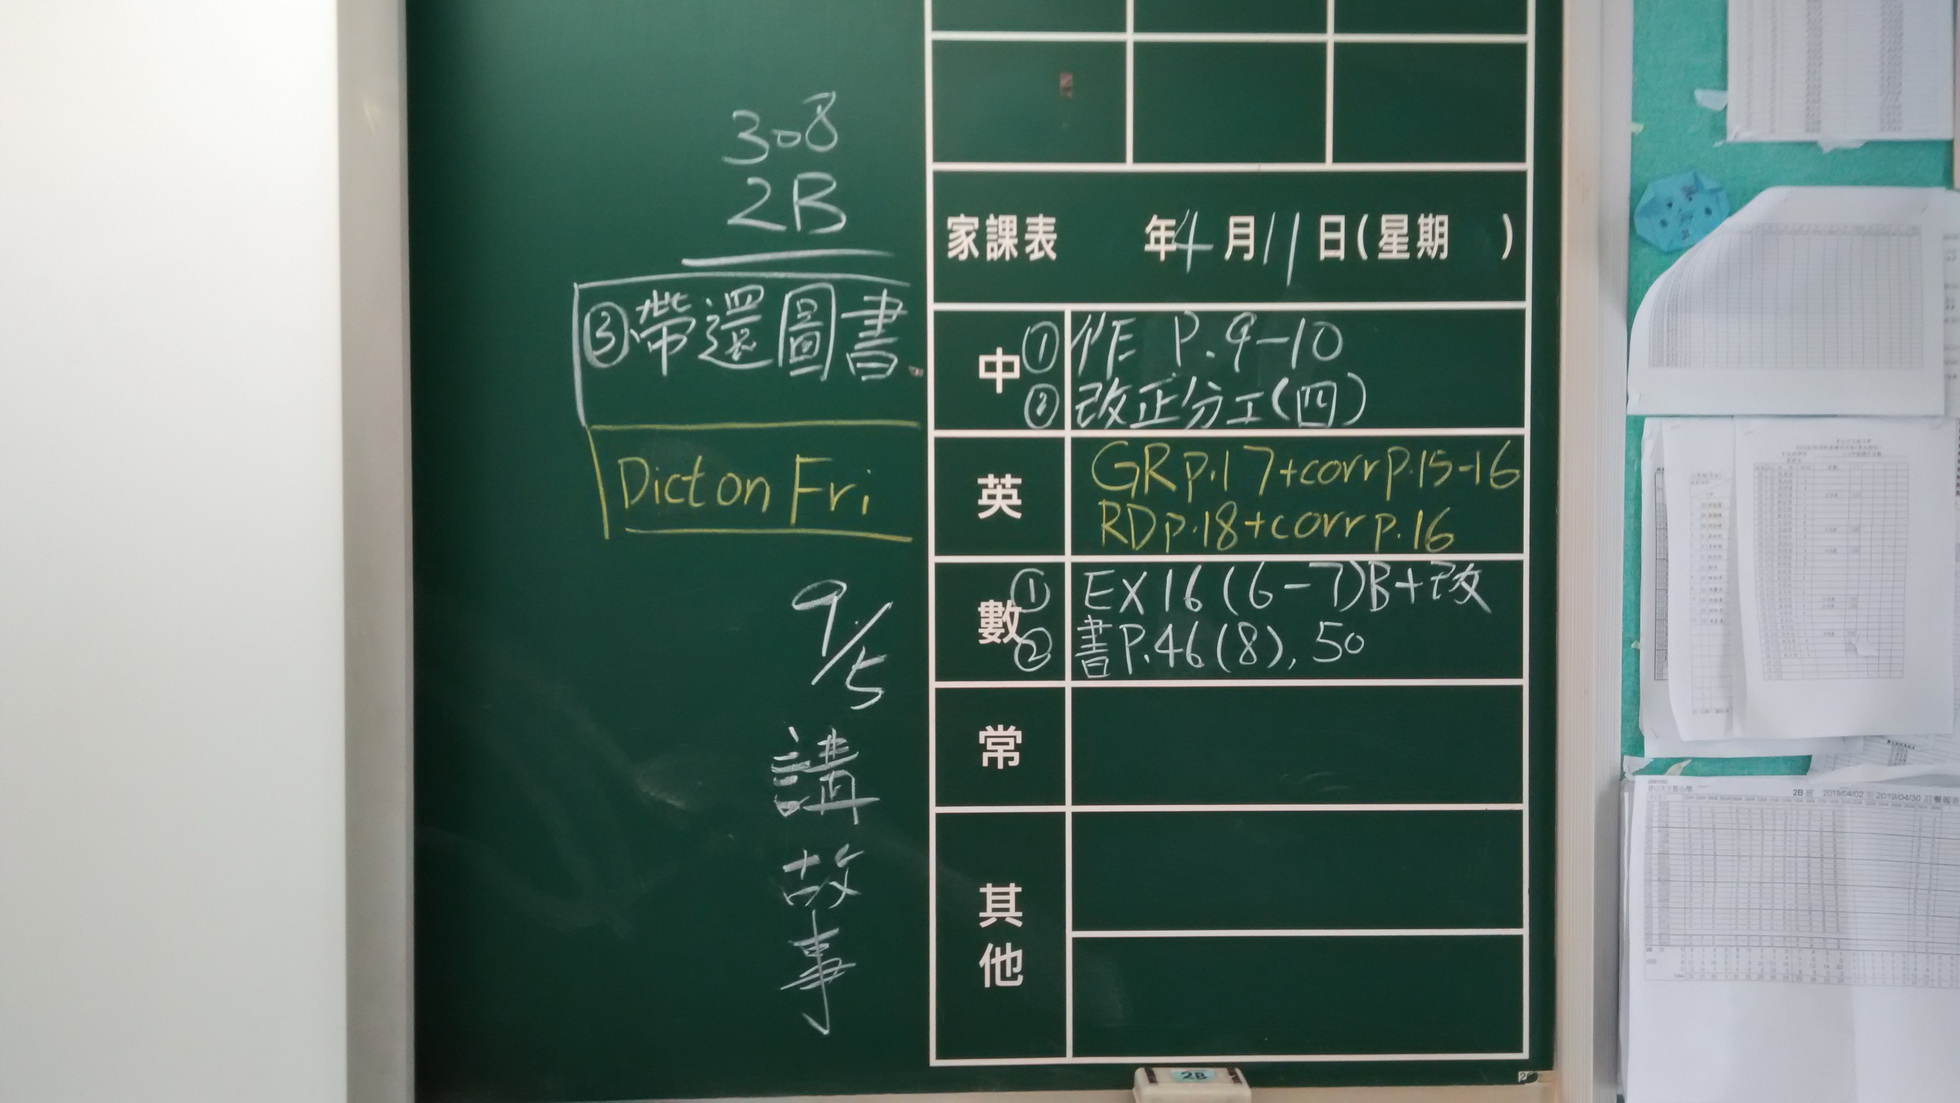 308
2B
③帶還圖書
Dict on Fri
9/5
講故事
家課表 年4月11日(星期 )
中 ①作 P.9-10
②改正分工(四)
英 GR p.17+corr p.15-16
RD p.18+corr p.16
數 ①EX16(6-7)B+改
②書P.46(8), 50
常
其他
2B
2B 2019/04/02 至 2019/04/30